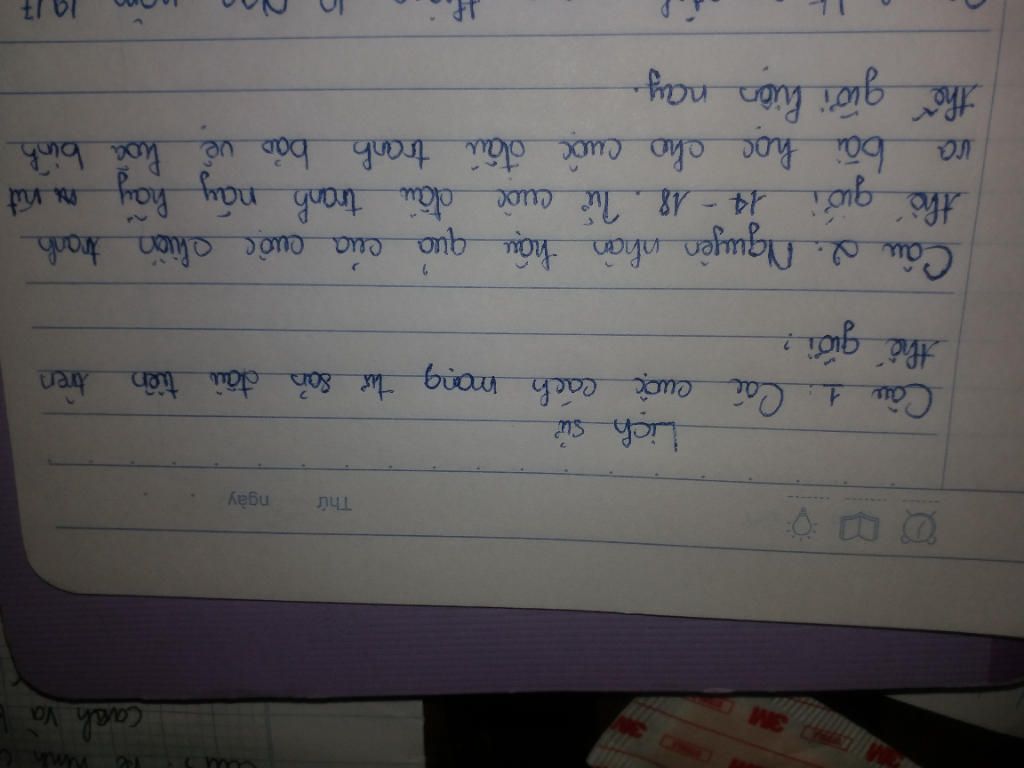 Thứ ngày
Lịch sử
Câu 1. Các cuộc cách mạng tư sản đầu tiên trên
thế giới?
Câu 2. Nguyên nhân hậu quả của cuộc chiến tranh
thế giới 14 - 18. Từ cuộc đấu tranh này hãy rút
ra bài học cho cuộc đấu tranh bảo vệ hoà bình
thế giới hiện nay.
10 Nga năm 1917
3M
3M
3M
cách và